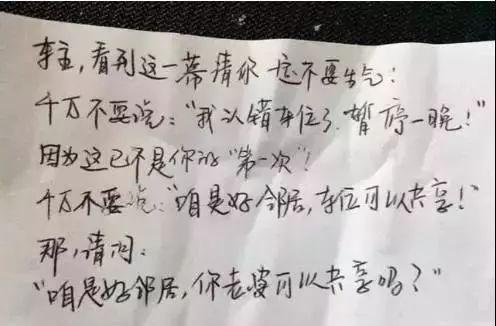 车主,看到这一幕请你一定不要生气!
千万不要说:“我认错车位了,暂停一晚!”
因为这已不是你的“第一次”!
千万不要说:“咱是好邻居,车位可以共享!”
那,请问:
“咱是好邻居,你老婆可以共享吗?”